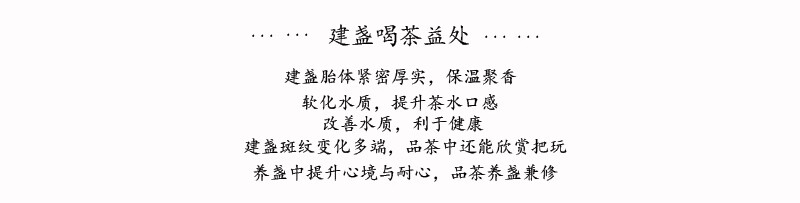 … … 建盏喝茶益处 … …
建盏胎体紧密厚实，保温聚香
软化水质，提升茶水口感
改善水质，利于健康
建盏斑纹变化多端，品茶中还能欣赏把玩
养盏中提升心境与耐心，品茶养盏兼修